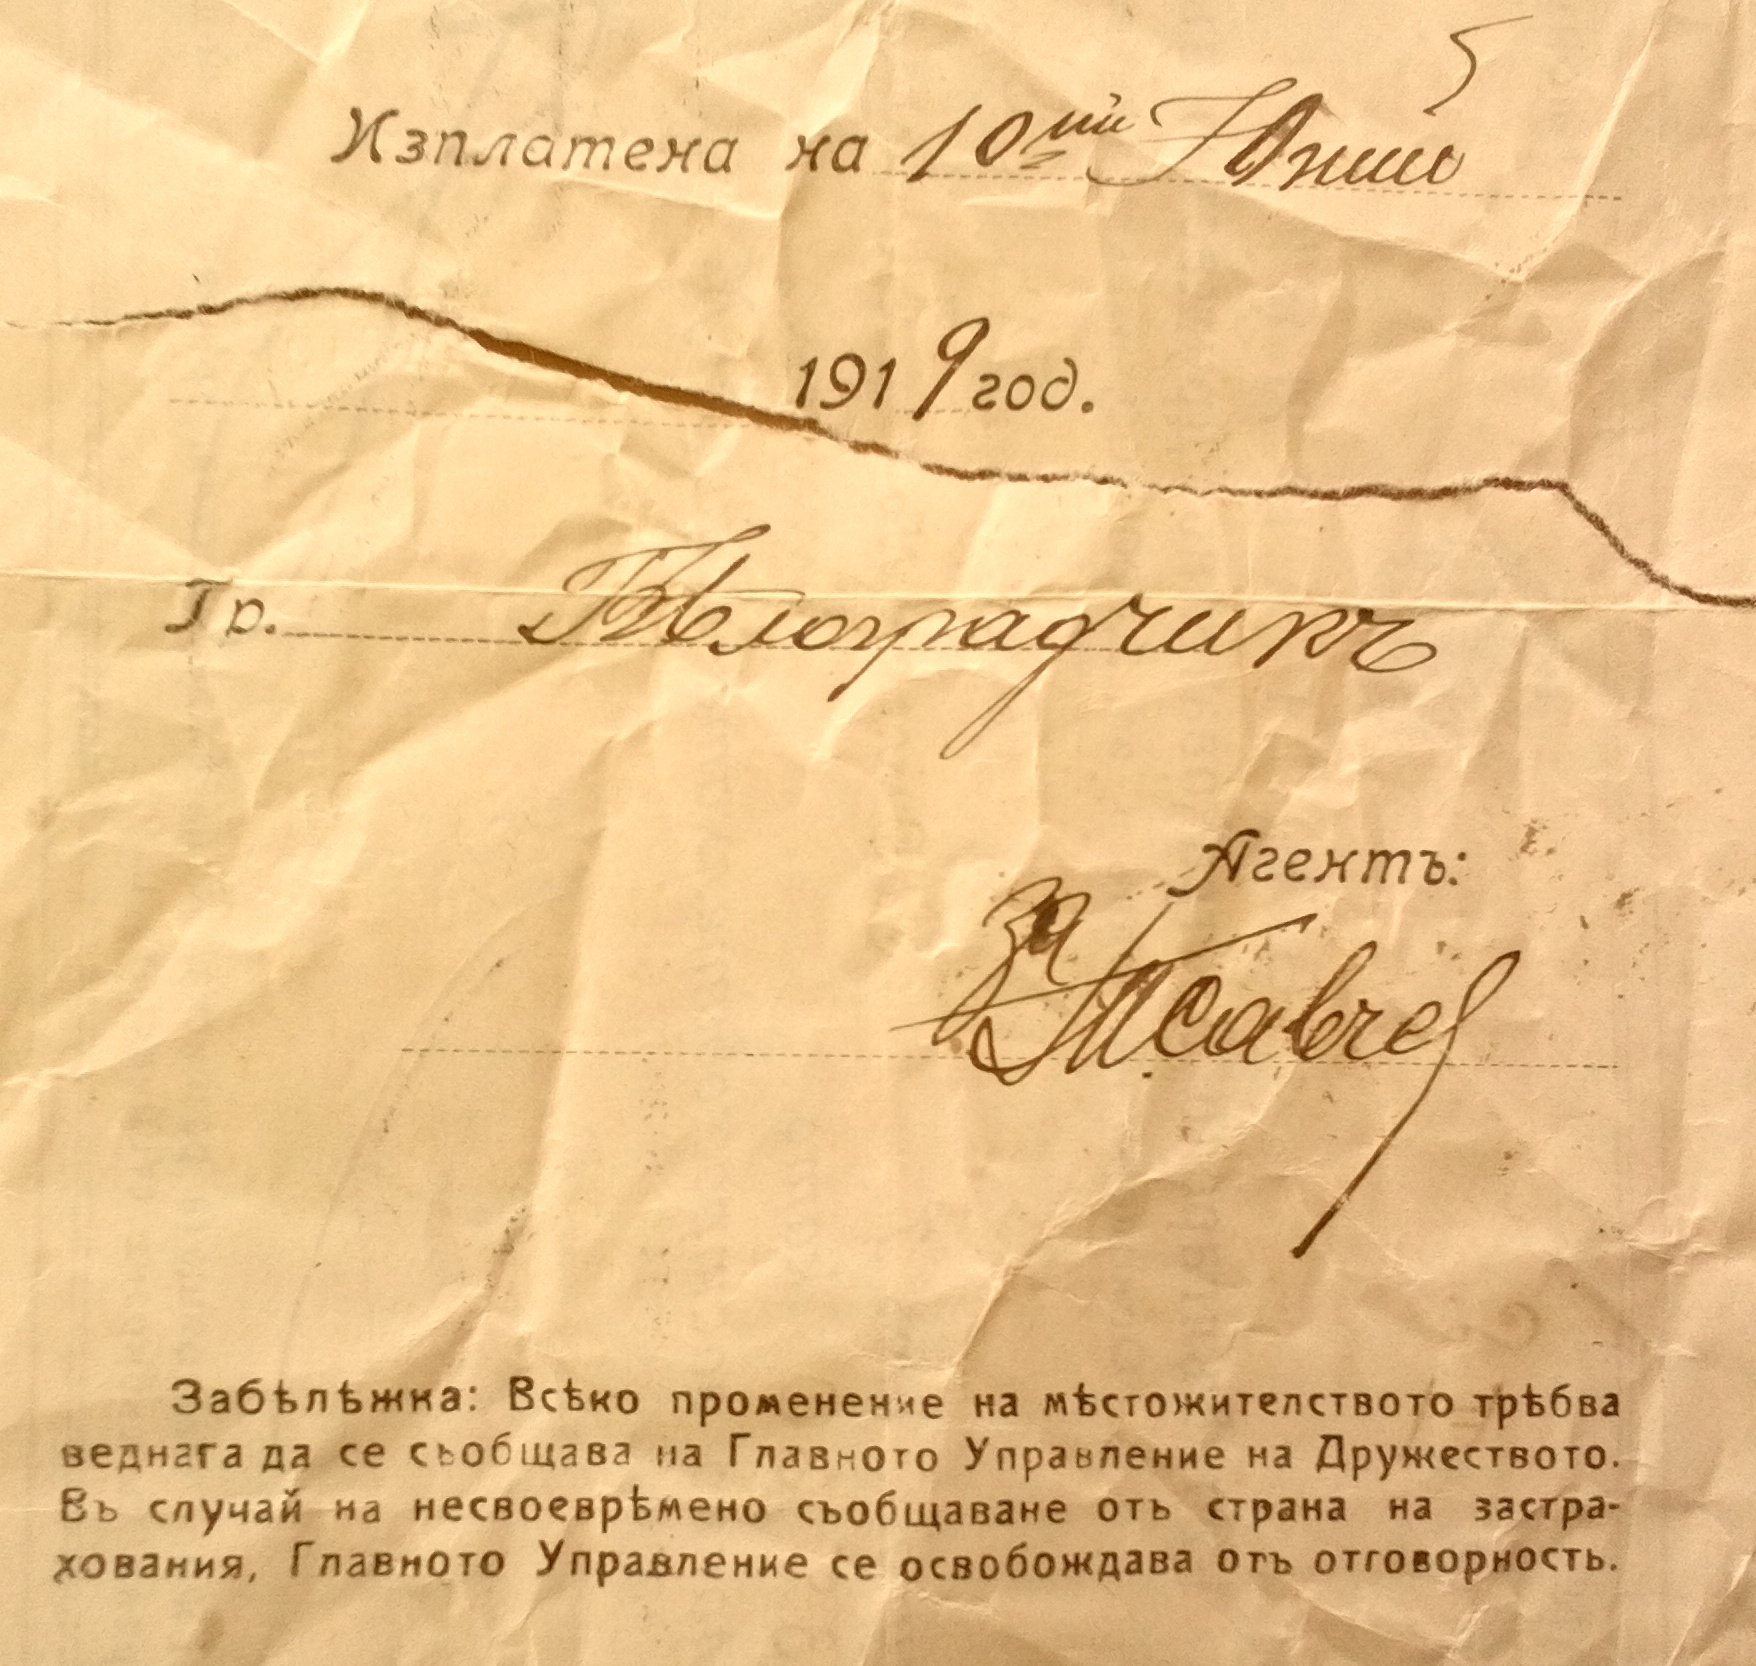 Изплатена на 10ий Юний
1919 год.
Гр. Бѣлоградчикъ
Агентъ:
за
Забѣлѣжка: Всѣко променение на мѣстожителството трѣбва
веднага да се съобщава на Главното Управление на Дружеството.
Въ случай на несвоеврѣмено съобщаване отъ страна на застра-
хования, Главното Управление се освобождава отъ отговорность.